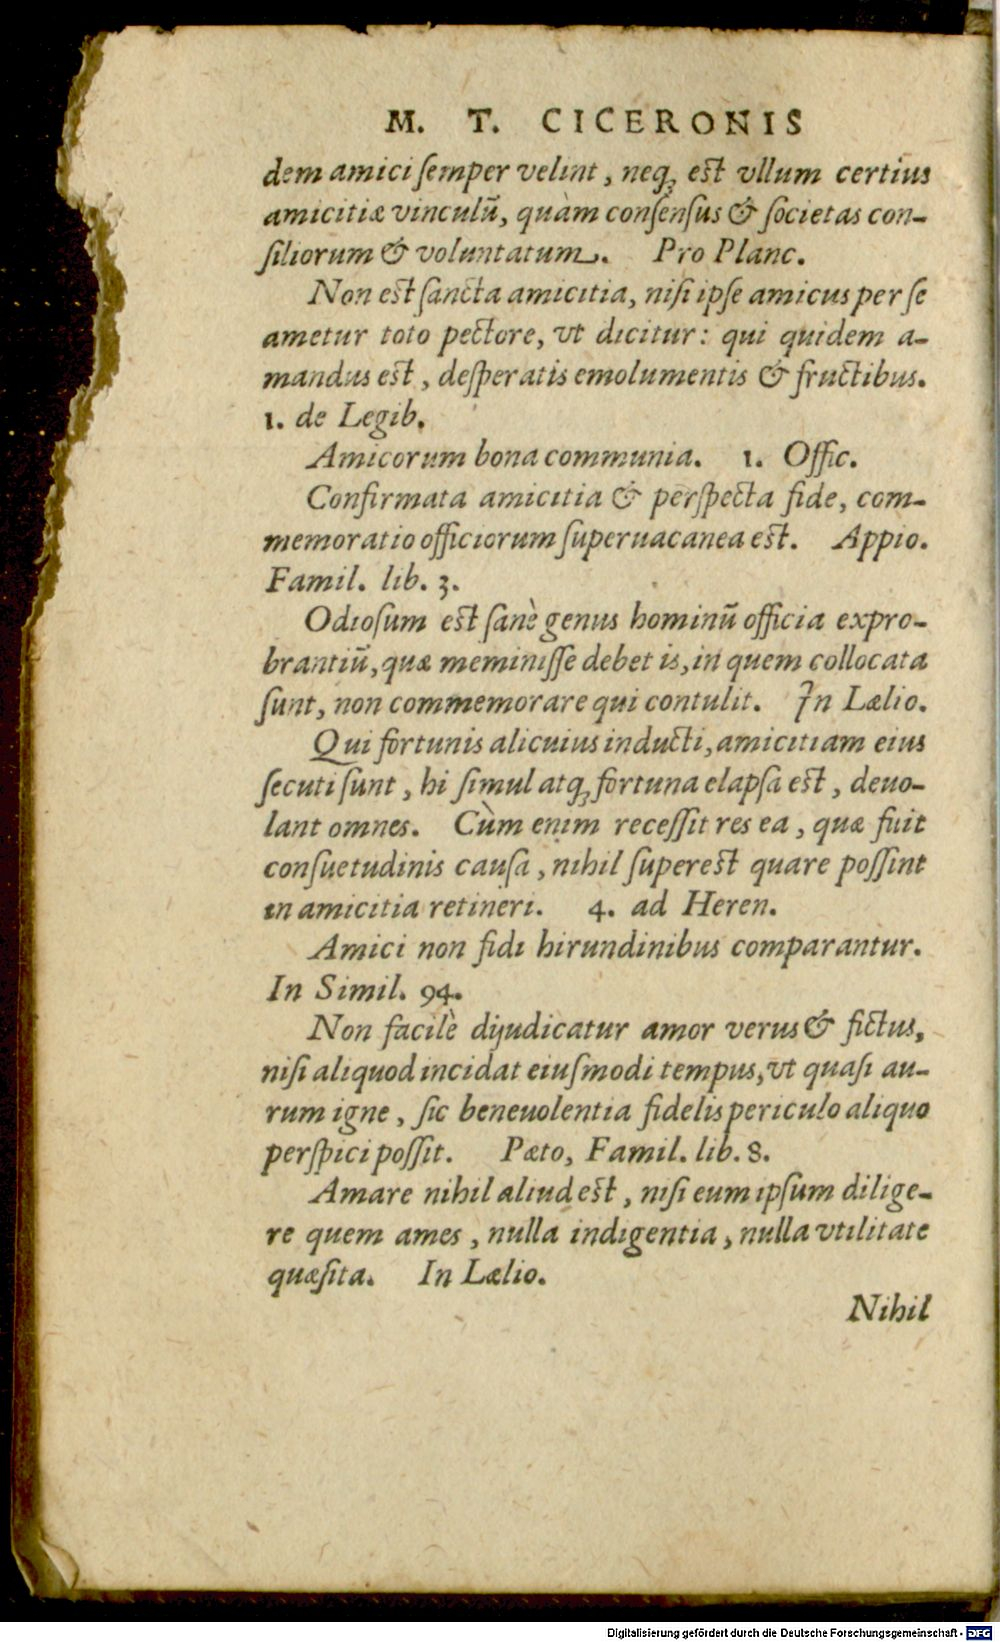 M. T. CICERONIS
dem amici ſemper velint, neq; eſt vllum certius
amicitiæ vinculũ, quàm conſenſus & ſocietas con-
ſiliorum & voluntatum. Pro Planc.
Non eſt ſancta amicitia, niſi ipſe amicus per ſe
ametur toto pectore, vt dicitur: qui quidem a-
mandus eſt, deſperatis emolumentis & fructibus.
1. de Legib.
Amicorum bona communia. 1. Offic.
Confirmata amicitia & perſpecta fide, com-
memoratio officiorum ſuperuacanea eſt. Appio.
Famil. lib. 3.
Odioſum eſt ſanè genus hominũ officia expro-
brantiũ, quæ meminiſſe debet is, in quem collocata
ſunt, non commemorare qui contulit. In Lælio.
Qui fortunis alicuius inducti, amicitiam eius
ſecuti ſunt, hi ſimul atq; fortuna elapſa eſt, deuo-
lant omnes. Cùm enim receſſit res ea, quæ fuit
conſuetudinis cauſa, nihil ſupereſt quare poſſint
in amicitia retineri. 4. ad Heren.
Amici non fidi hirundinibus comparantur.
In Simil. 94.
Non facilè dijudicatur amor verus & fictus,
niſi aliquod incidat eiuſmodi tempus, vt quaſi au-
rum igne, ſic beneuolentia fidelis periculo aliquo
perſpici poſſit. Pæto, Famil. lib. 8.
Amare nihil aliud eſt, niſi eum ipſum dilige-
re quem ames, nulla indigentia, nulla vtilitate
quæſita. In Lælio.
Nihil
Digitalisierung gefördert durch die Deutsche Forschungsgemeinschaft - DFG